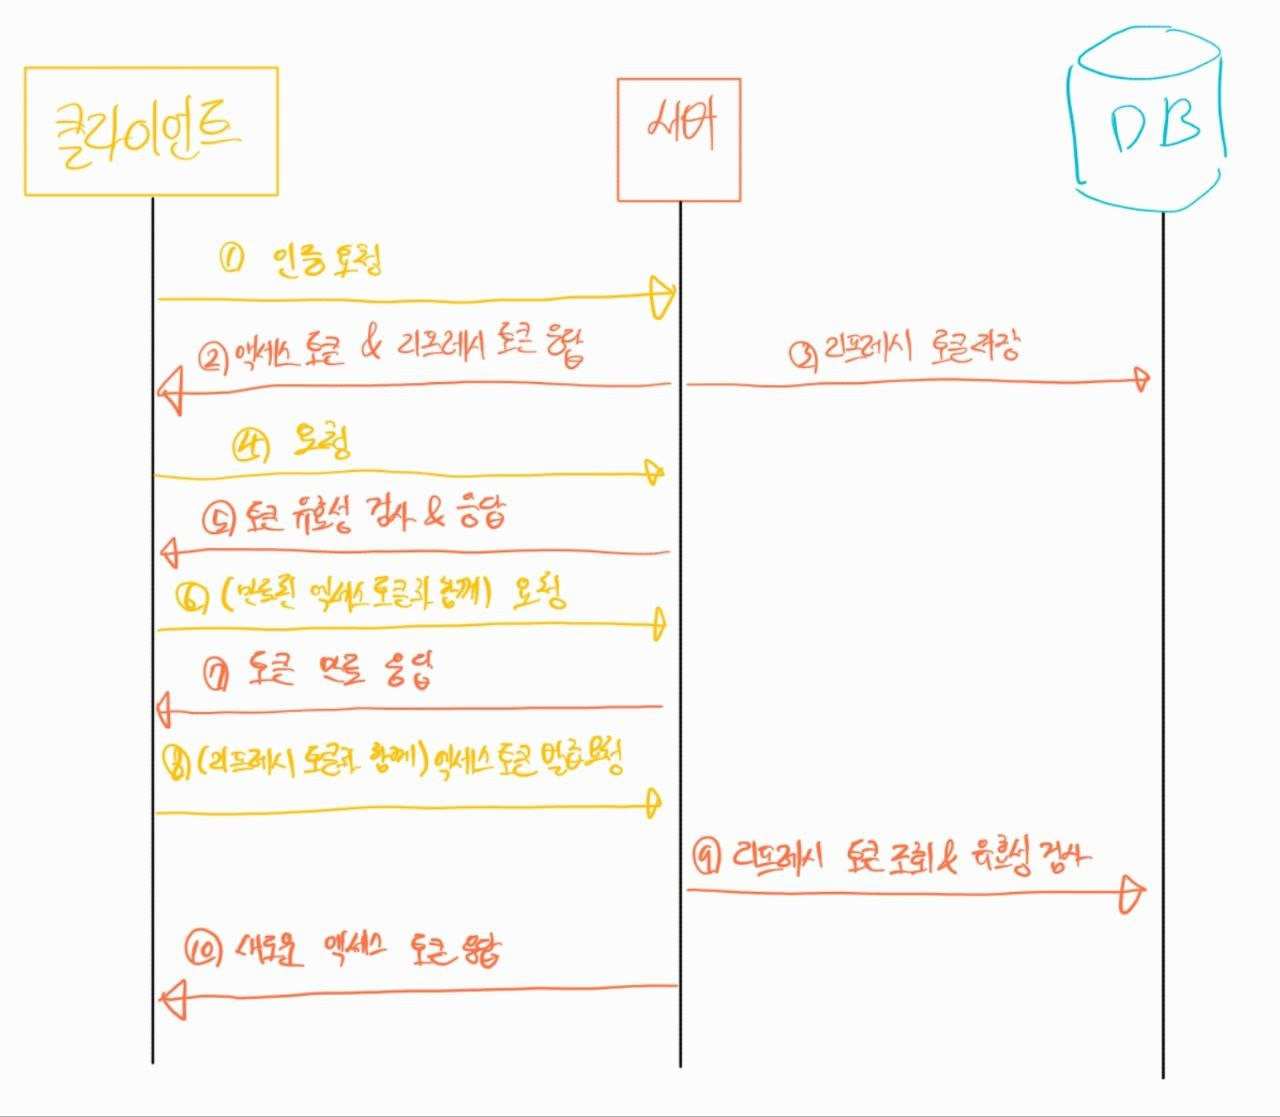 클라이언트
서버
DB
① 인증 요청
② 액세스 토큰 & 리프레시 토큰 응답
③ 리프레시 토큰 저장
④ 요청
⑤ 토큰 유효성 검사 & 응답
⑥ (만료된 액세스 토큰과 함께) 요청
⑦ 토큰 만료 응답
⑧ (리프레시 토큰과 함께) 액세스 토큰 발급 요청
⑨ 리프레시 토큰 조회 & 유효성 검사
⑩ 새로운 액세스 토큰 응답